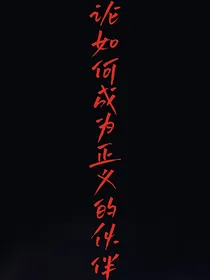 论如何成为正义的伙伴